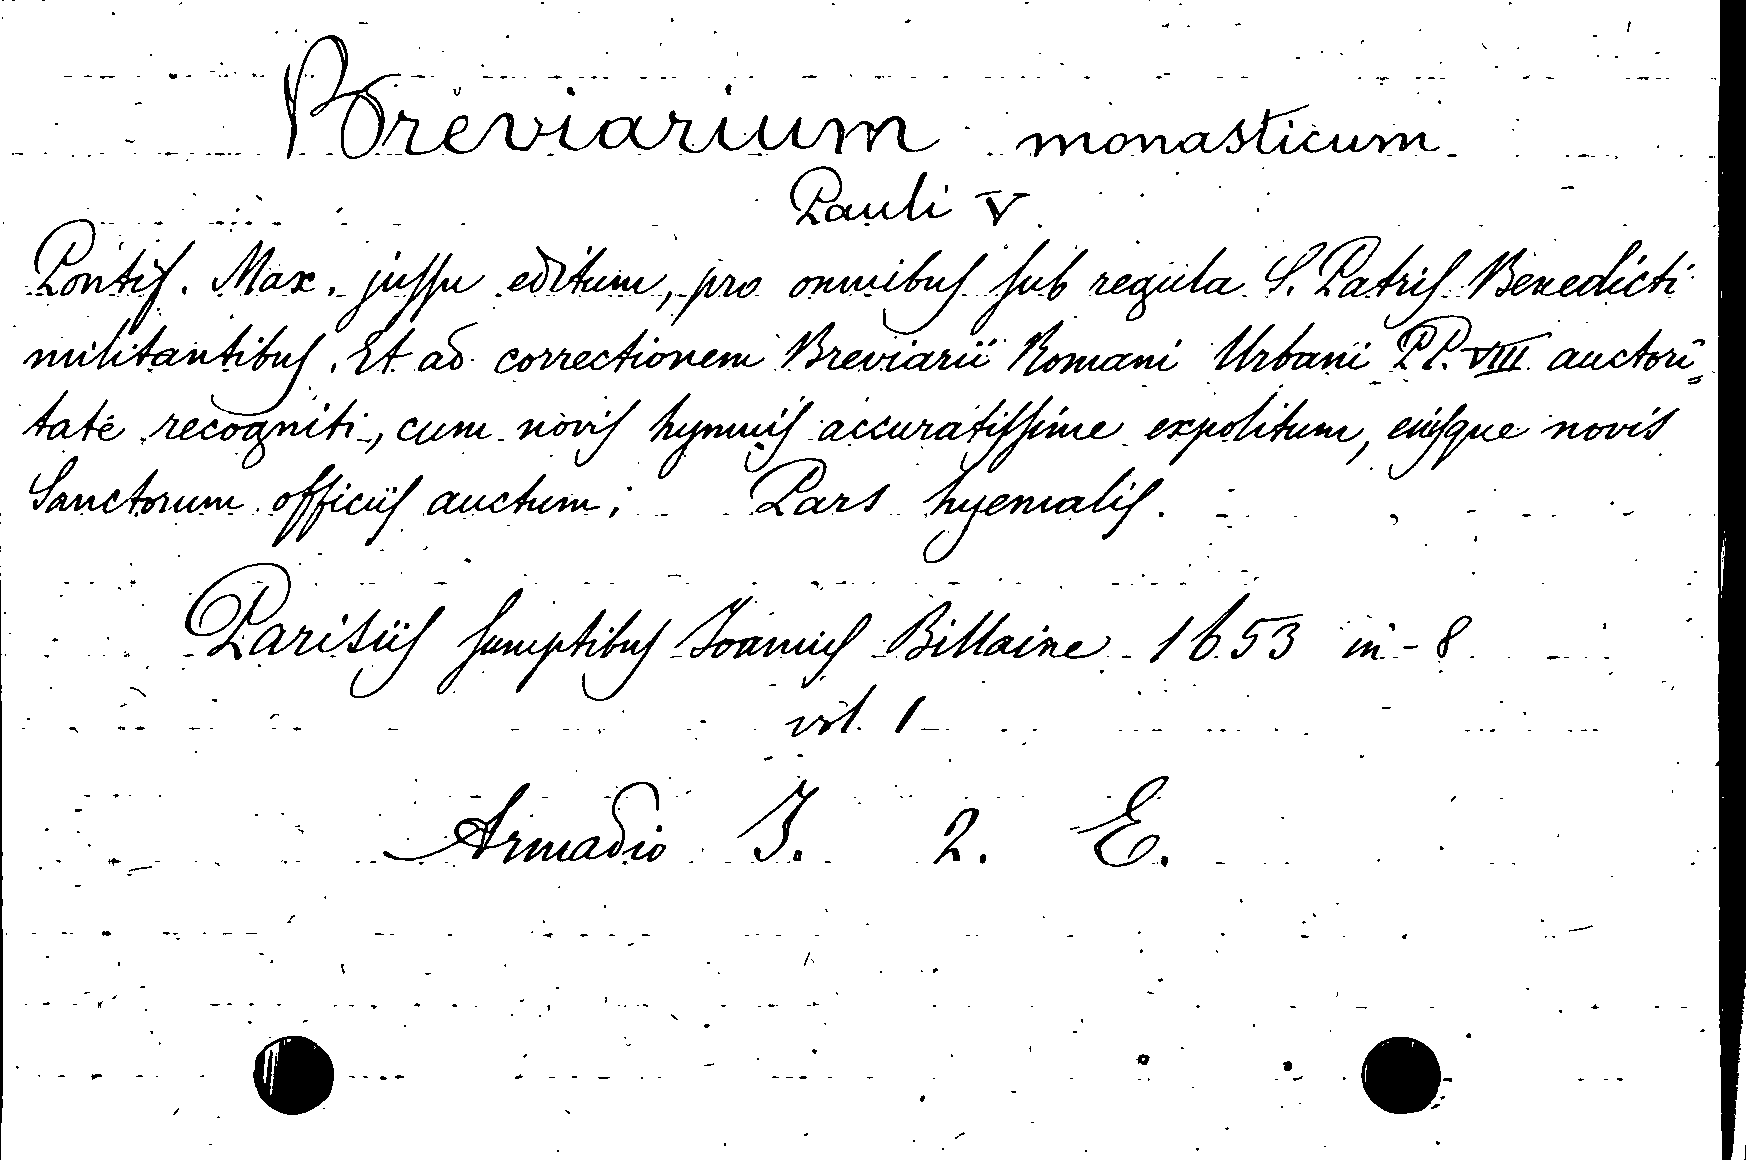 Breviarium monasticum
Pauli V
Pontif. Max. jussu editum, pro omnibus sub regula S. Patris Benedicti
militantibus. Et ad correctionem Breviarii Romani Urbani PP. VIII auctori=
tate recogniti, cum novis hymnis accuratissime expolitum, eiisque novis
Sanctorum officiis auctum; Pars hyemalis.
Parisiis sumptibus Joannis Billaine 1653 in-8
vol. 1
Armadio I. 2. E.